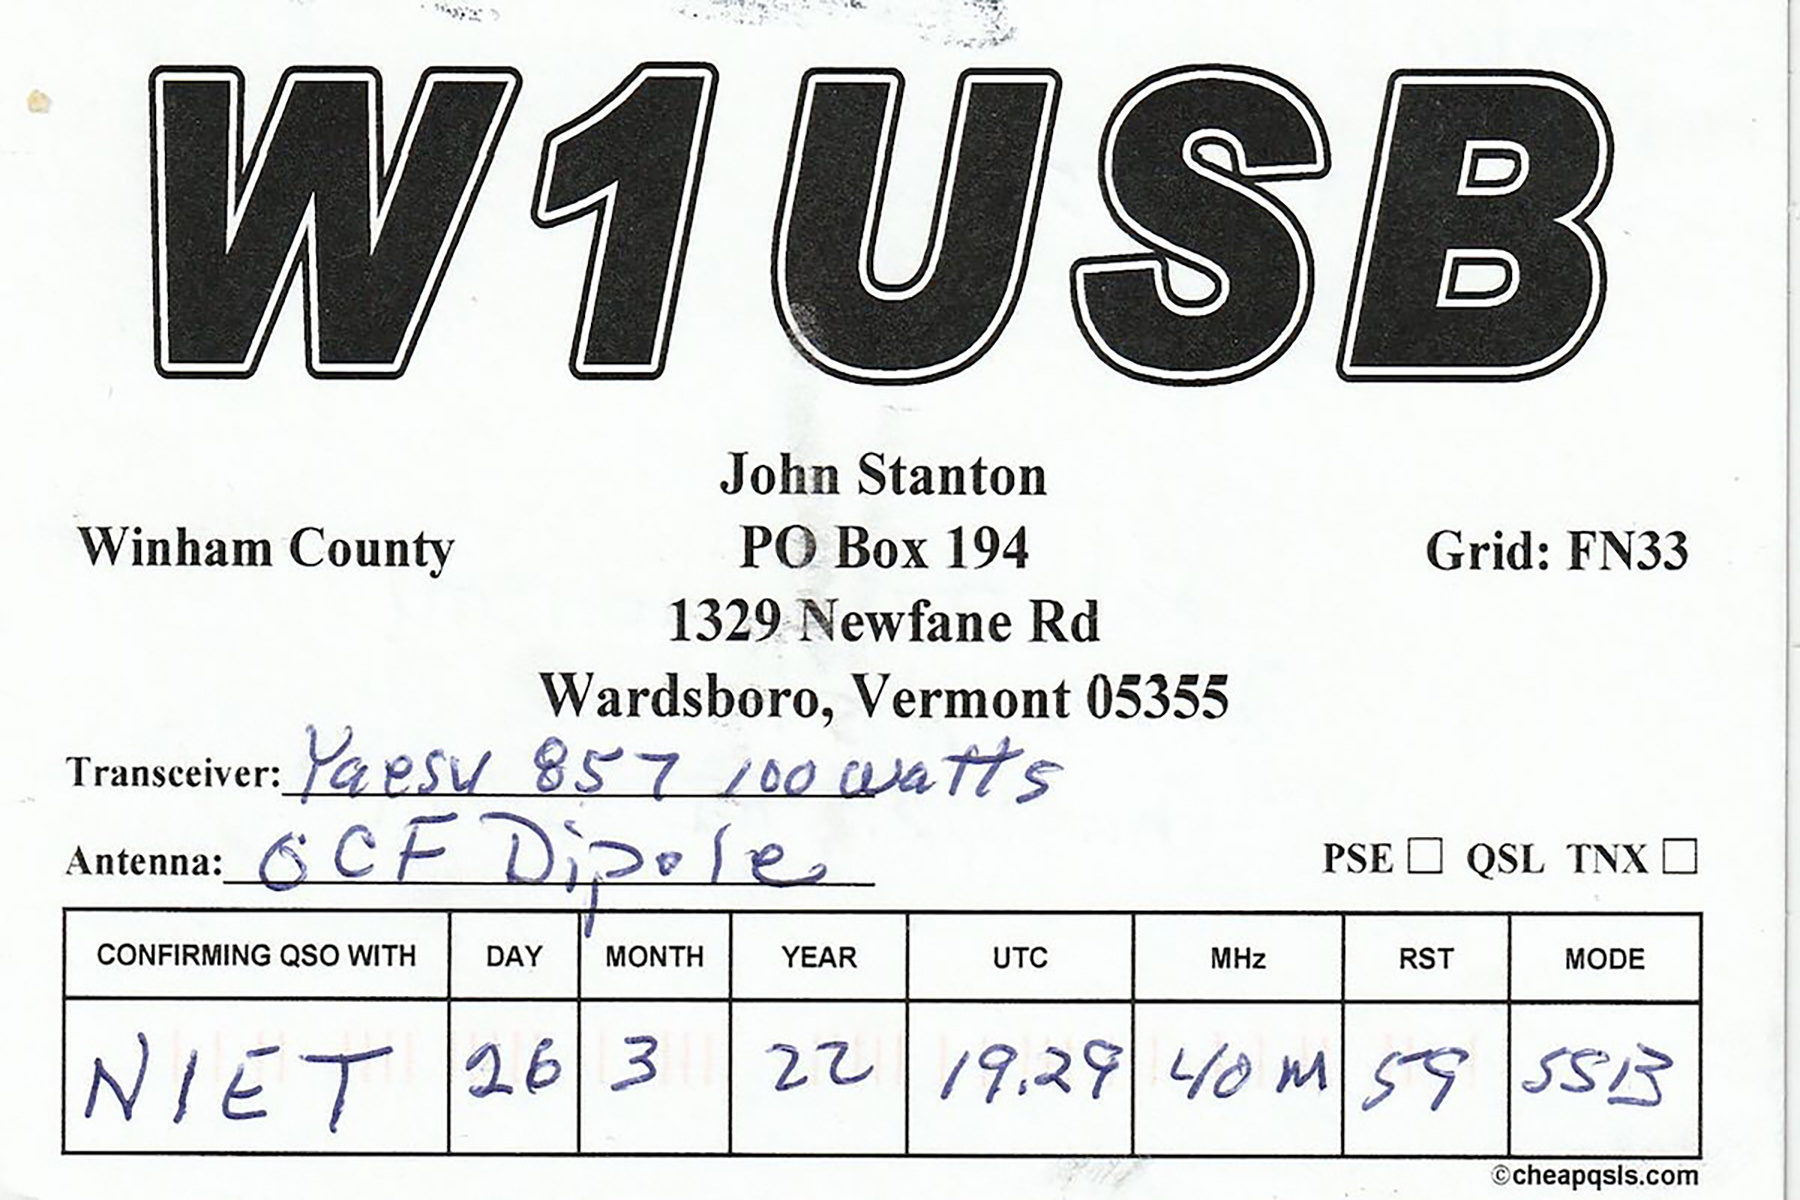 W1USB
John Stanton
Winham County PO Box 194 Grid: FN33
1329 Newfane Rd
Wardsboro, Vermont 05355
Transceiver: Yaesu 857 100 watts
Antenna: OCF Dipole PSE QSL TNX
CONFIRMING QSO WITH DAY MONTH YEAR UTC MHz RST MODE
N1ET 26 3 22 19.29 40 M 59 SSB
©cheapqsls.com